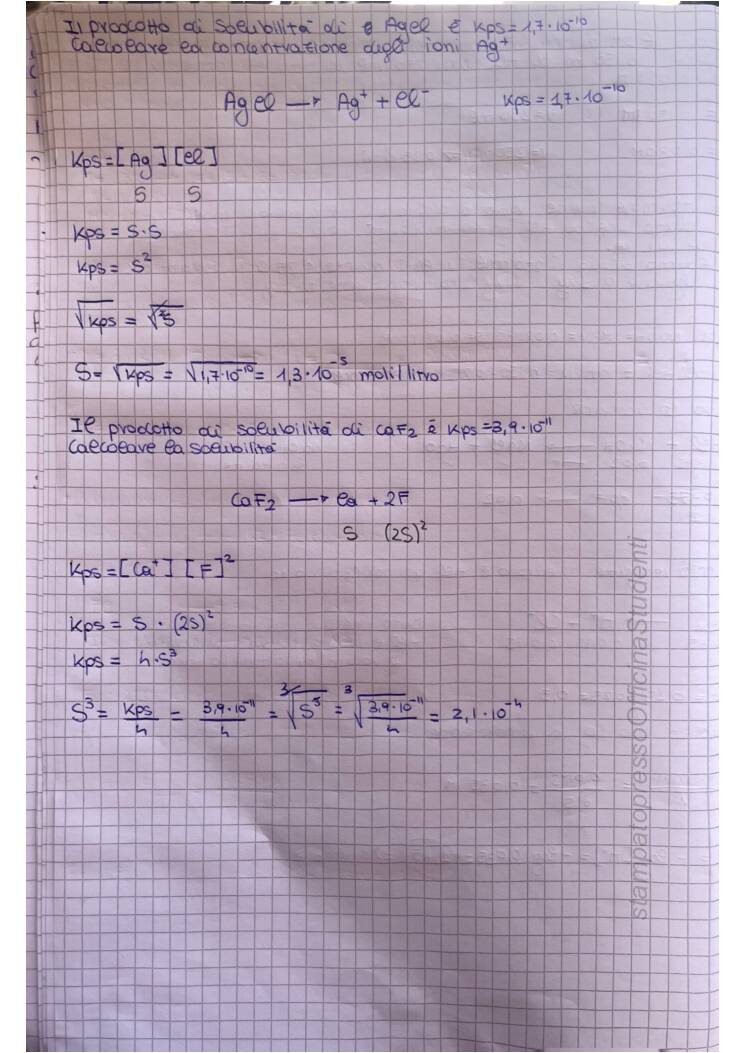 Il prodotto di solubilità di AgCl è Kps = 1,7·10⁻¹⁰
Calcolare la concentrazione degli ioni Ag⁺
AgCl → Ag⁺ + Cl⁻ Kps = 1,7·10⁻¹⁰
Kps = [Ag] [Cl]
S S
Kps = S·S
Kps = S²
√Kps = √S²
S = √Kps = √1,7·10⁻¹⁰ = 1,3·10⁻⁵ moli/litro
Il prodotto di solubilità di CaF₂ è Kps = 3,9·10⁻¹¹
Calcolare la solubilità
CaF₂ → Ca + 2F
S (2S)²
Kps = [Ca⁺] [F]²
Kps = S · (2S)²
Kps = 4·S³
S³ = Kps/4 = 3,9·10⁻¹¹/4 = ³√S³ = ³√3,9·10⁻¹¹/4 = 2,1·10⁻⁴
stampatopressoOfficinaStudenti